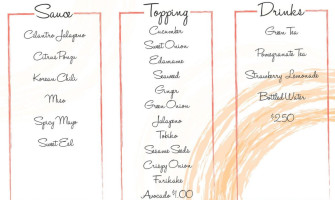 Sauce
Cilantro Jalapeno
Citrus Ponzu
Korean Chili
Miso
Spicy Mayo
Sweet Eel
Topping
Cucumber
Sweet Onion
Edamame
Seaweed
Ginger
Green Onion
Jalapeno
Tobiko
Sesame Seeds
Crispy Onion
Furikake
Avocado $1.00
Drinks
Green Tea
Pomegranate Tea
Strawberry Lemonade
Bottled Water
$2.50